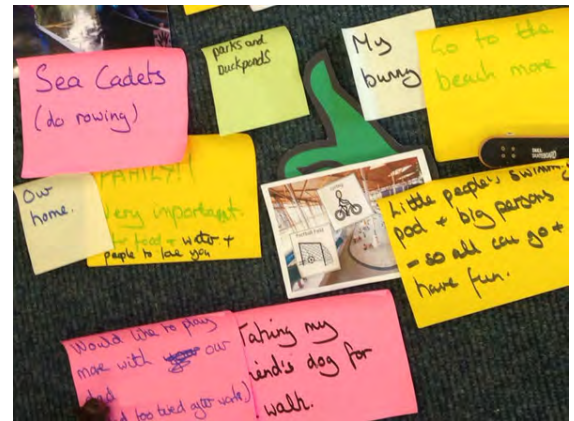 Sea Cadets
(do rowing)
parks and
Duckponds
My
bunny
Go to the
beach more
Our
home.
FAMILY!!
Very important.
food + water +
people to love you
Football Field
Little people's swimming
pod + big persons
- so all can go +
have fun.
Would like to play
more with our
dad
too tired after work)
Taking my
friend's dog for
walk.